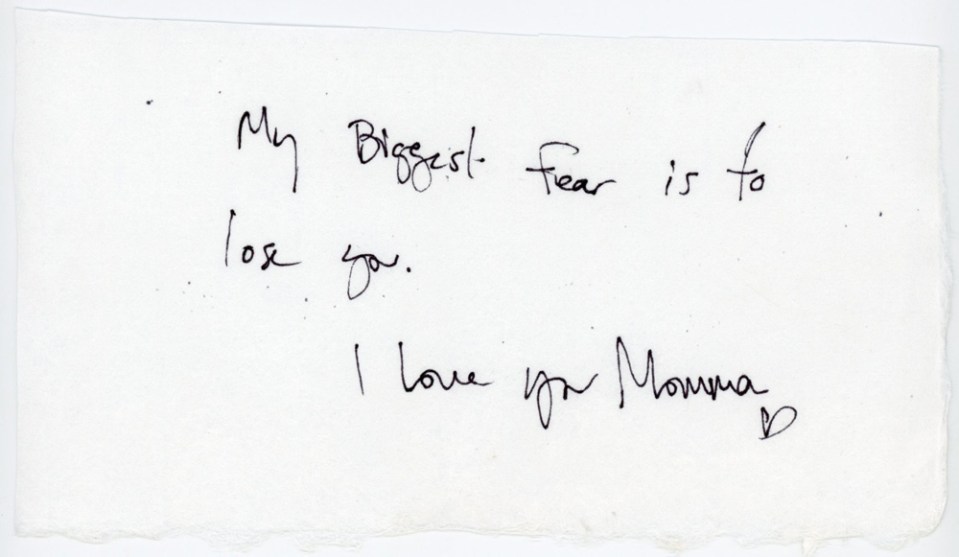 My Biggest fear is to
lose you.
I love you Momma